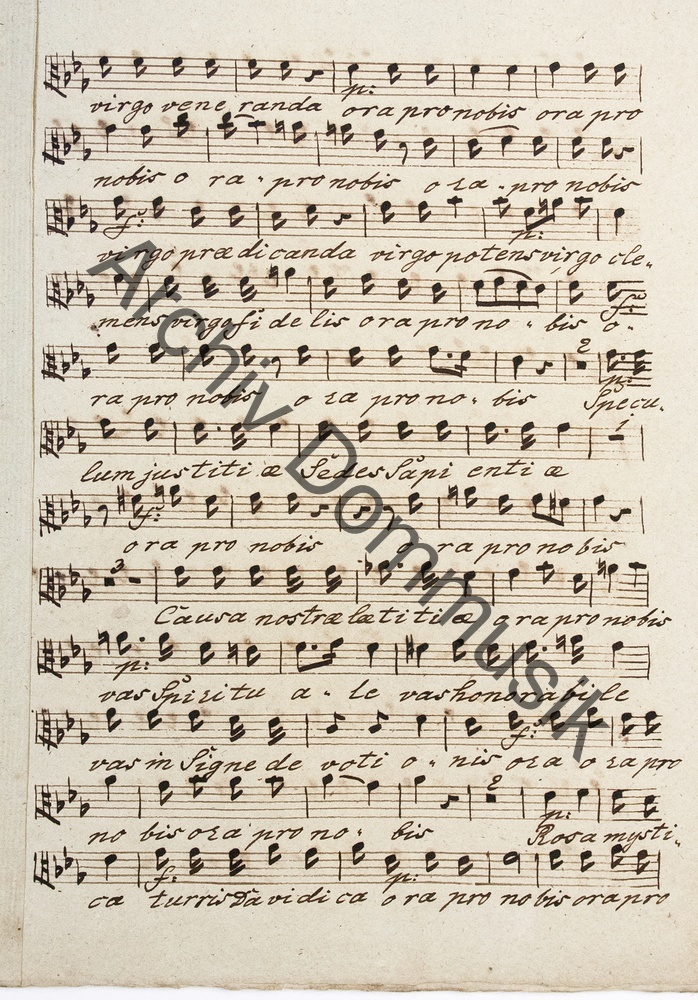 virgo vene randa ora pro nobis ora pro
p:
nobis o ra - pro nobis o ra - pro nobis
f:
p:
virgo prædicanda virgo potens virgo cle-
mens virgo fi de lis ora pro no - bis o -
f:
2
p:
ra pro nobis o ra pro no - bis Specu-
1
lum justiti æ Sedes Sapi enti æ
f:
ora pro nobis o ra pro no bis
3
Causa nostræ lætiti æ ora pro nobis
p:
vas Spiritu a - le vas honorabile
f:
vas in Signe de voti o - nis ora o ra pro
2
p:
no bis ora pro no - bis Rosa mysti-
f:
p:
ca turris Davidi ca o ra pro nobis ora pro
Archiv Dommusik